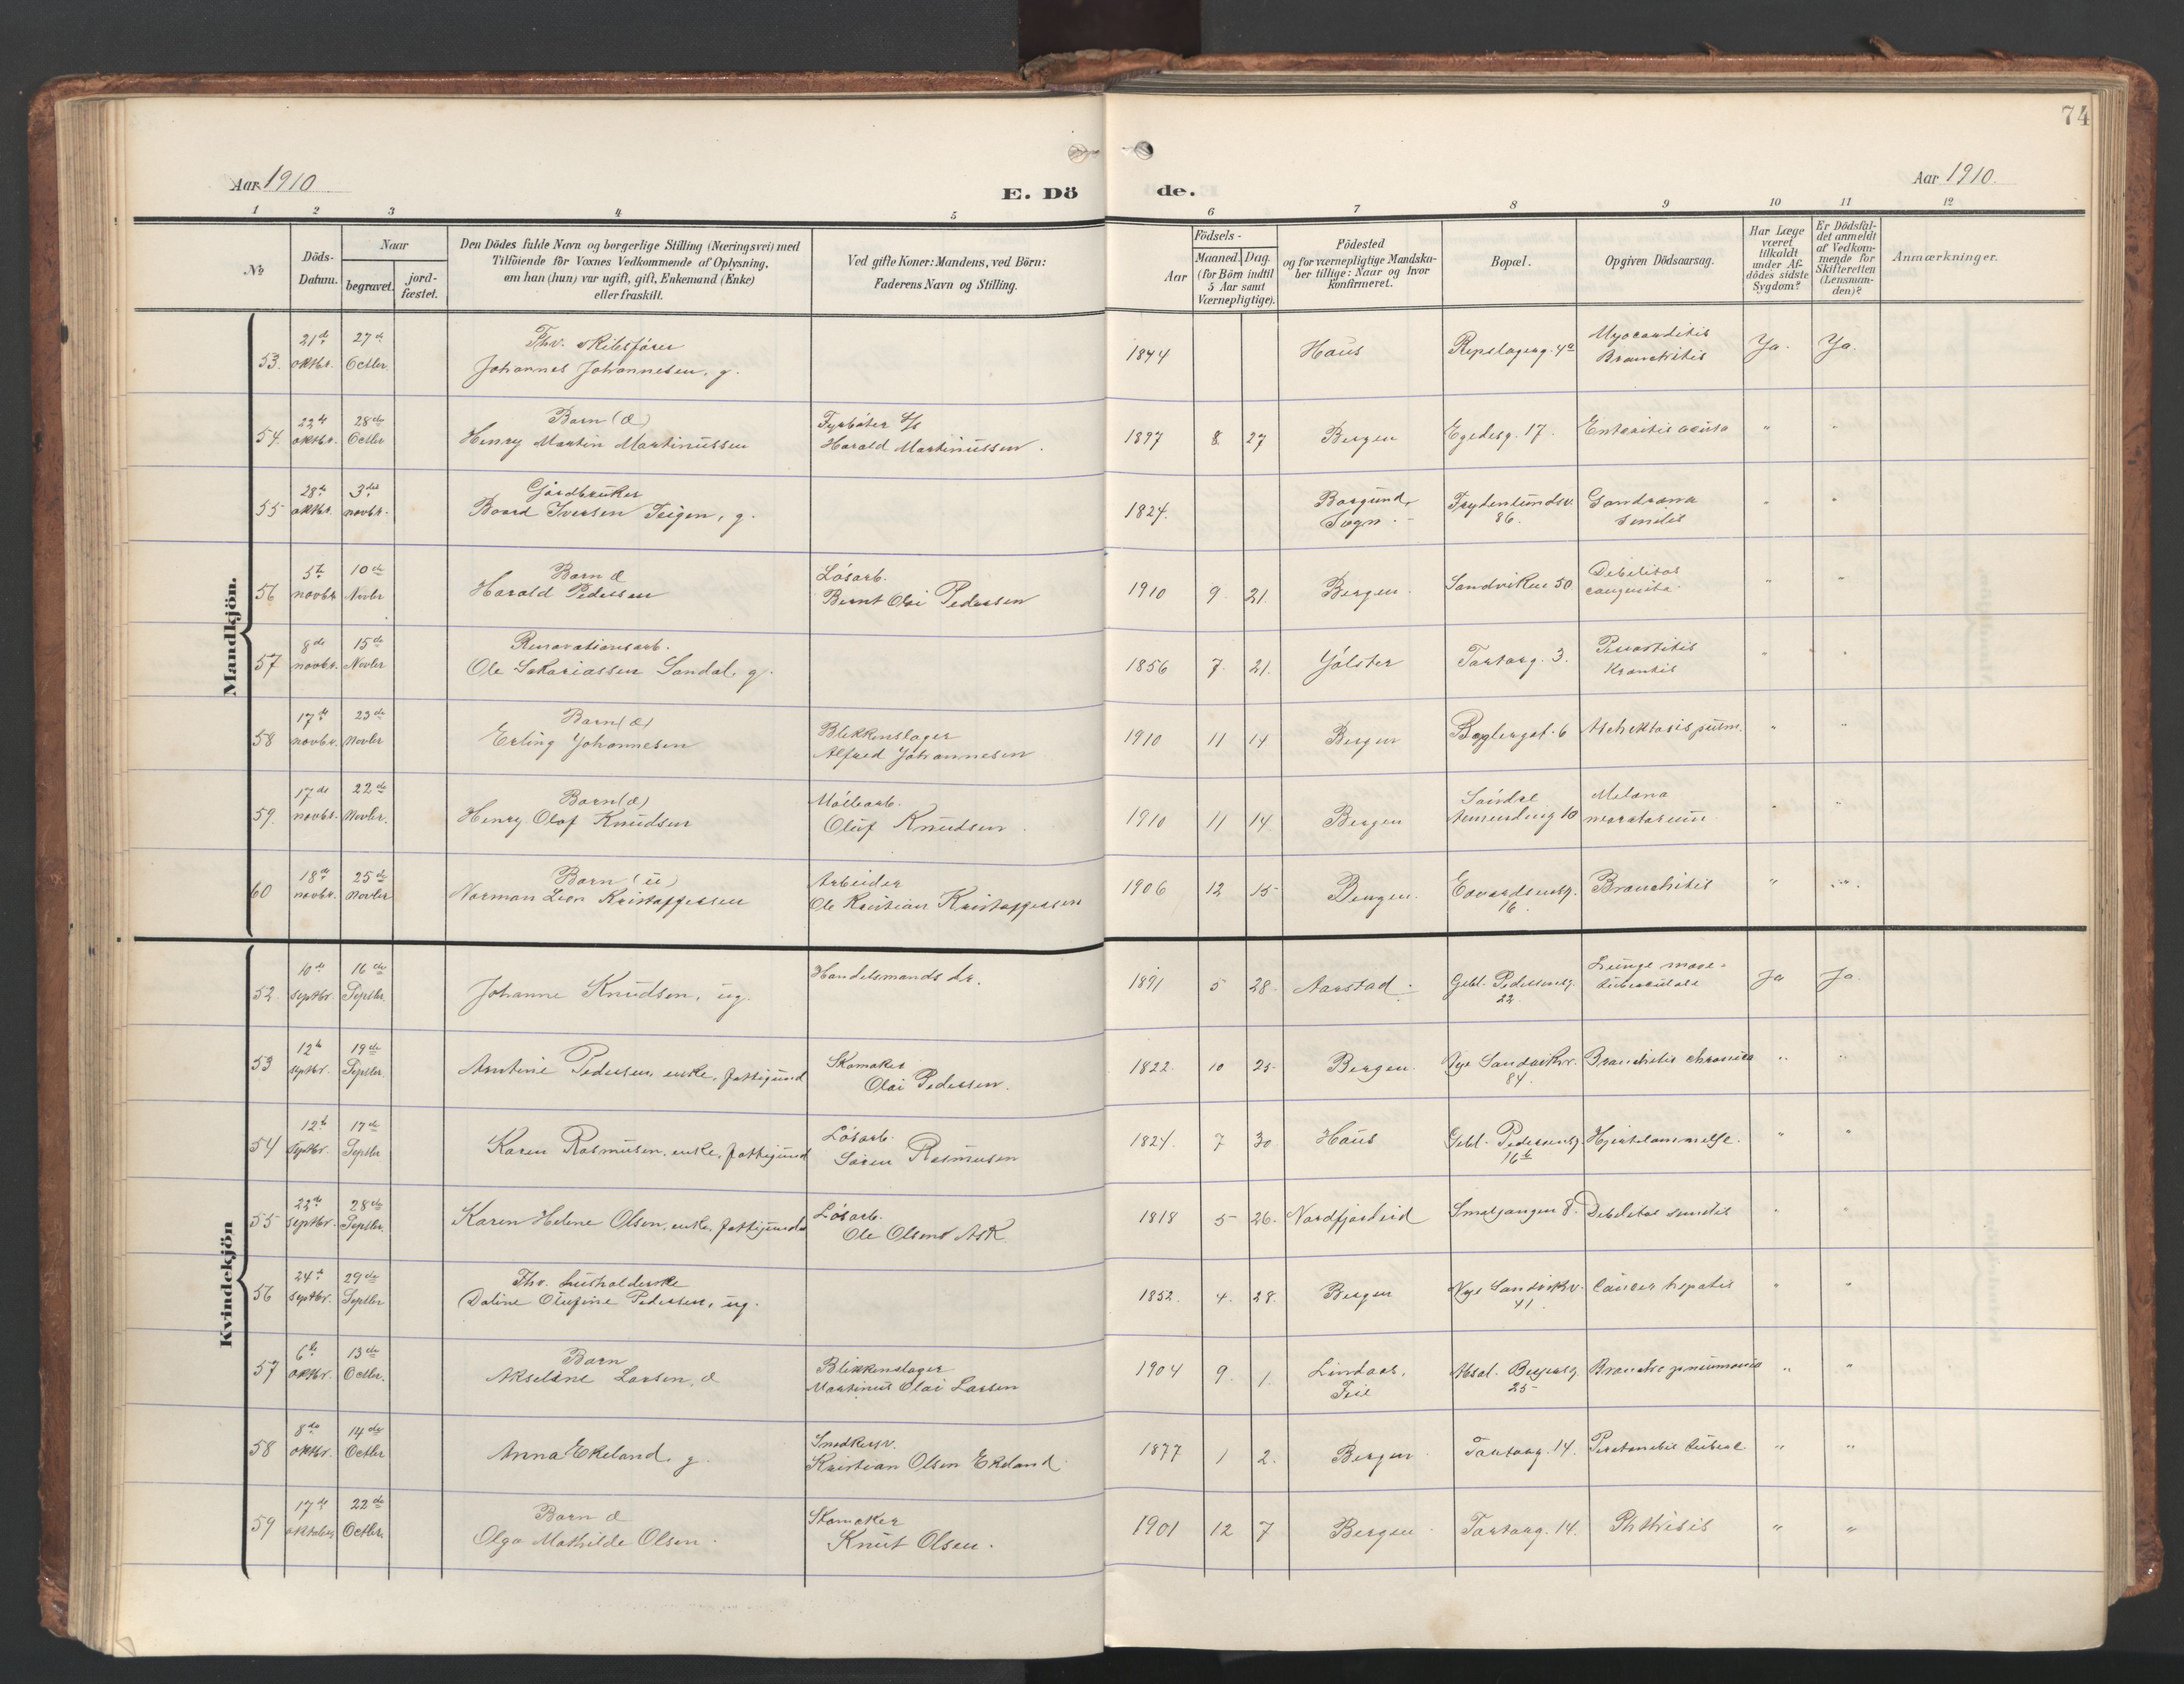 74
Aar 1910
E. Dö de.
Aar 1910.
1 2 3 4 5 6 7 8 9 10 11 12
№
Döds-Datum.
Naar
begravet.
jord-fæstet.
Den Dödes fulde Navn og borgerlige Stilling (Næringsvei) med
Tilföiende för Voxnes Vedkommende af Oplysning,
om han (hun) var ugift, gift, Enkemand (Enke)
eller fraskilt.
Ved gifte Koner: Mandens, ved Börn:
Faderens Navn og Stilling.
Födsels-
Aar
Maaned.
Dag.
(for Börn indtil
5 Aar samt
Værnepligtige).
Födested
og for værnepligtige Mandska-
ber tillige: Naar og hvor
konfirmeret.
Bopæl.
Opgiven Dödsaarsag.
Har Læge
været
tilkaldt
under Af-
dödes sidste
Sygdom?
Er Dödsfal-
det anmeldt
af Vedkom-
mende for
Skifteretten
(Lensman-
den)?
Anmærkninger.
Mandkjön.
53. 21de oktbr. 27de Octbr. Fhv. skibsfører Johannes Johannesen, g. 1844 Haus Repslagerg. 4a Myocarditis Bronchitis Ja. Ja.
54. 22de oktbr. 28de Octbr Barn (æ) Henry Martin Martinussen Fyrbøter Harald Martinussen. 1897 8 27 Bergen Egedesg. 17. Enteritis acuta " "
55 28de oktbr. 3die novbr. Gardbruker Baard Iversen Teigen, g. 1824. Borgund, Sogn. Frydenlundsv. 86. Gandræna senilis " "
56 5te novbr. 10de Novbr Barn æ Harald Pedersen Løsarb. Bernt Olai Pedersen 1910 9 21 Bergen. Sandviken 50 Debilitas congenita " "
57 8de novbr. 15de Novbr Renovationsarb. Ole Sakariassen Sandal, g. 1856 7. 21. Jølster Tartarg. 3. " "
58 17de novbr. 23de Novbr Barn (æ) Erling Johannesen Blikkenslager Alfred Johannesen 1910 11 14 Bergen Baglergat. 6 Atelektasis pulm. " "
59. 17de novbr. 22de Novbr. Barn (æ) Henry Olaf Knudsen Møllearb. Oluf Knudsen. 1910 11 14 Bergen 10 Melæna neonatorum " "
60 18de novbr. 25de Novbr Barn (u) Norman Leon Kristoffersen Arbeider Ole Kristian Kristoffersen 1906 12 15 Bergen. Edvardsensg. 16. Bronchitis " "
Kvindekjön
52. 10de septbr. 16de Septbr. Johanne Knudsen, ug. Handelsmands dr. 1891 5 28 Aarstad. Gebl. Pedersensg. 22. Ja Ja.
53 12te septbr. 19de Septbr. Antine Pedersen, enke, fattigund Skomaker Olai Pedersen. 1822. 10 25 Bergen. Nye Sandviksv. 84. Bronchitis chronica " "
54 12te Septbr. 17de Septbr Karen Rasmusen, enke, fattigund Løsarb. Søren Rasmusen 1824. 7 30 Haus Gebl. Pedersensg 16b Hjertelammelse. " "
55 22de septbr. 28de Septbr. Karen Helene Olsen, enke, fattigund Løsarb. Ole Olsens Ask 1818 5 26. Nordfjordeid Smalgangen 8. Debilitas senilis " "
56 24de septbr. 29de Septbr Fhv. husholderske Daline Olufine Pedersen, ug. 1852. 4. 28. Bergen Nye Sandviksv. 41. Cancer hepatis " "
57 6te oktbr. 13de Octbr. Barn Akseline Larsen, æ Blikkenslager Martinus Olai Larsen 1904 9. 1. Lindaas, Absal. Beyersg. 25 Broncho pneumonia " "
58 8de oktbr. 14de Octbr Anna Ekeland, g. Snedkersv. Kristian Olsen Ekeland. 1877 1 2. Bergen Tartarg. 14. Peritonitis tuberc " "
59 17de oktober 22de Octbr. Barn æ Olga Mathilde Olsen. Skomaker Knut Olsen. 1901 12 7 Bergen Tartarg. 14. Phthisis " "